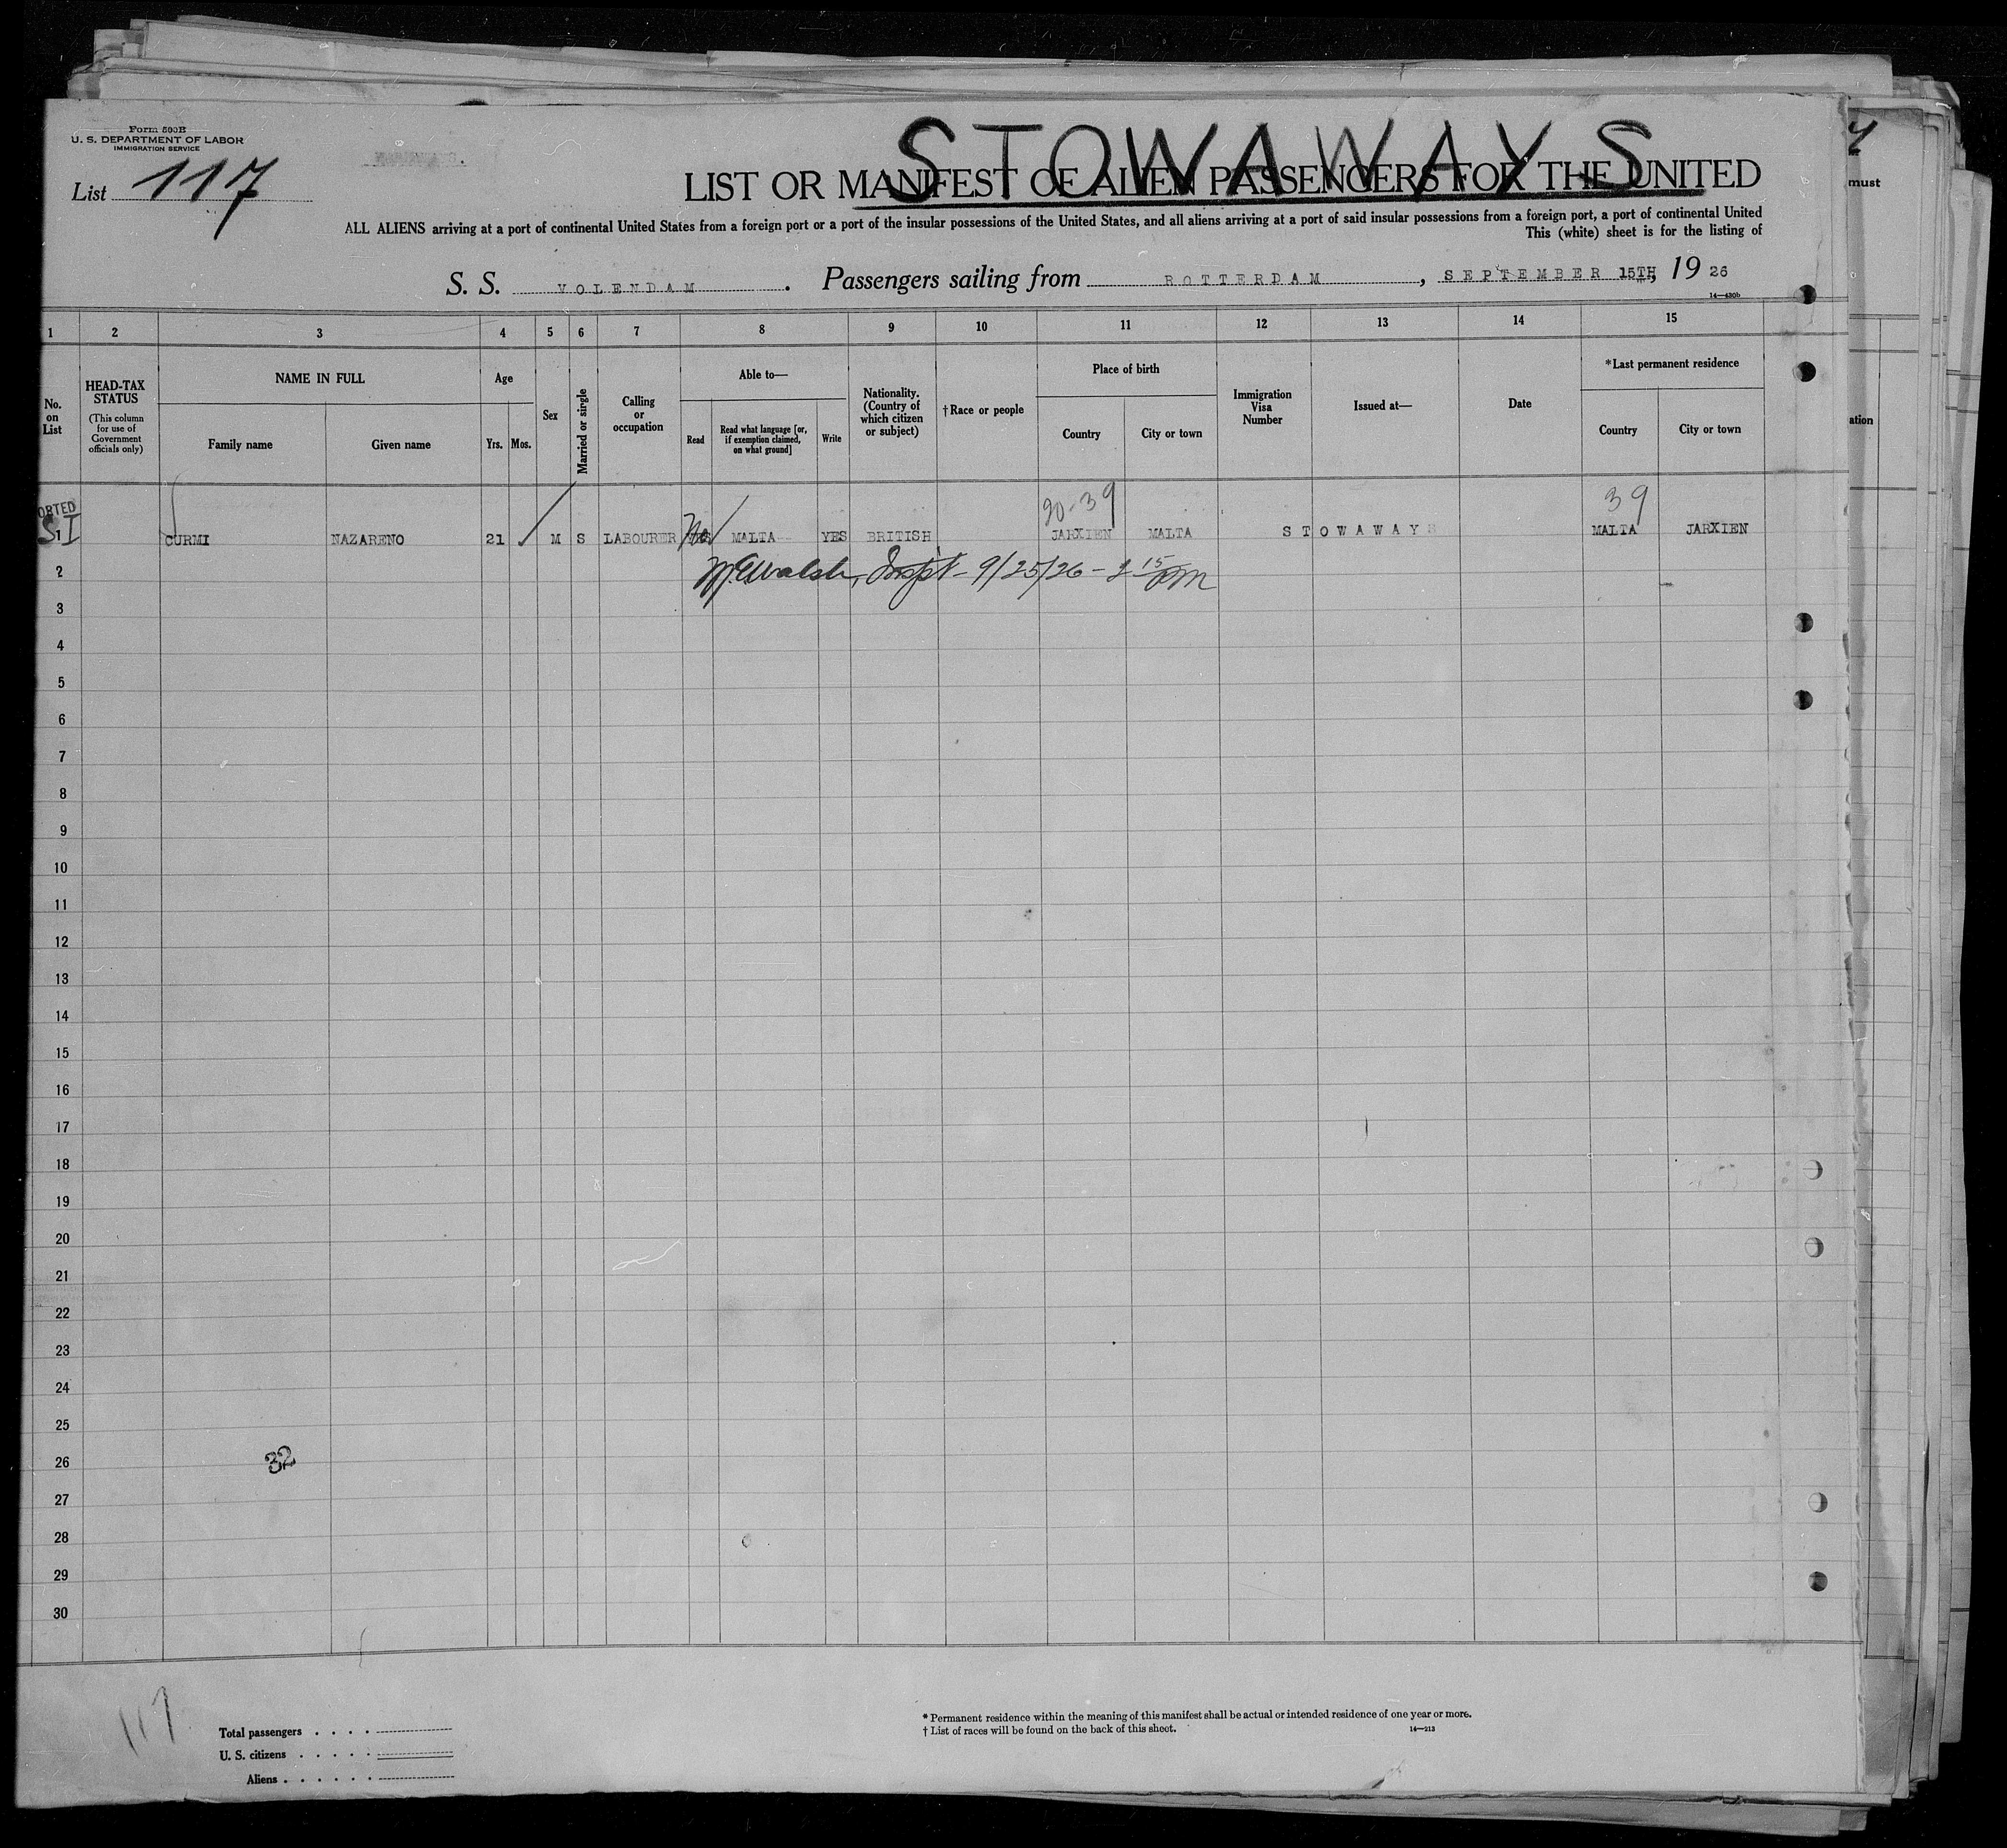 Form 500B
U. S. DEPARTMENT OF LABOR
IMMIGRATION SERVICE
List 117
STOWAWAYS
LIST OR MANIFEST OF ALIEN PASSENGERS FOR THE UNITED
ALL ALIENS arriving at a port of continental United States from a foreign port or a port of the insular possessions of the United States, and all aliens arriving at a port of said insular possessions from a foreign port, a port of continental United
This (white) sheet is for the listing of
S. S. VOLENDAM. Passengers sailing from ROTTERDAM, SEPTEMBER 15TH, 1926
14—430b
1 2 3 4 5 6 7 8 9 10 11 12 13 14 15
No. on List
HEAD-TAX STATUS
(This column for use of Government officials only)
NAME IN FULL
Family name
Given name
Age
Yrs.
Mos.
Sex
Married or single
Calling or occupation
Able to—
Read
Read what language [or, if exemption claimed, on what ground]
Write
Nationality. (Country of which citizen or subject)
†Race or people
Place of birth
Country
City or town
Immigration Visa Number
Issued at—
Date
*Last permanent residence
Country
City or town
must
ation
20-39
39
ORTED
SI
1 CURMI NAZARENO 21 M S LABOURER No MALTA YES BRITISH JARXIEN MALTA STOWAWAYS MALTA JARXIEN
Walsh, Inspt - 9/25/26 - 2 15 PM
2
3
4
5
6
7
8
9
10
11
12
13
14
15
16
17
18
19
20
21
22
23
24
25
26 32
27
28
29
30
117
Total passengers
U. S. citizens
Aliens
* Permanent residence within the meaning of this manifest shall be actual or intended residence of one year or more.
† List of races will be found on the back of this sheet.
14—213